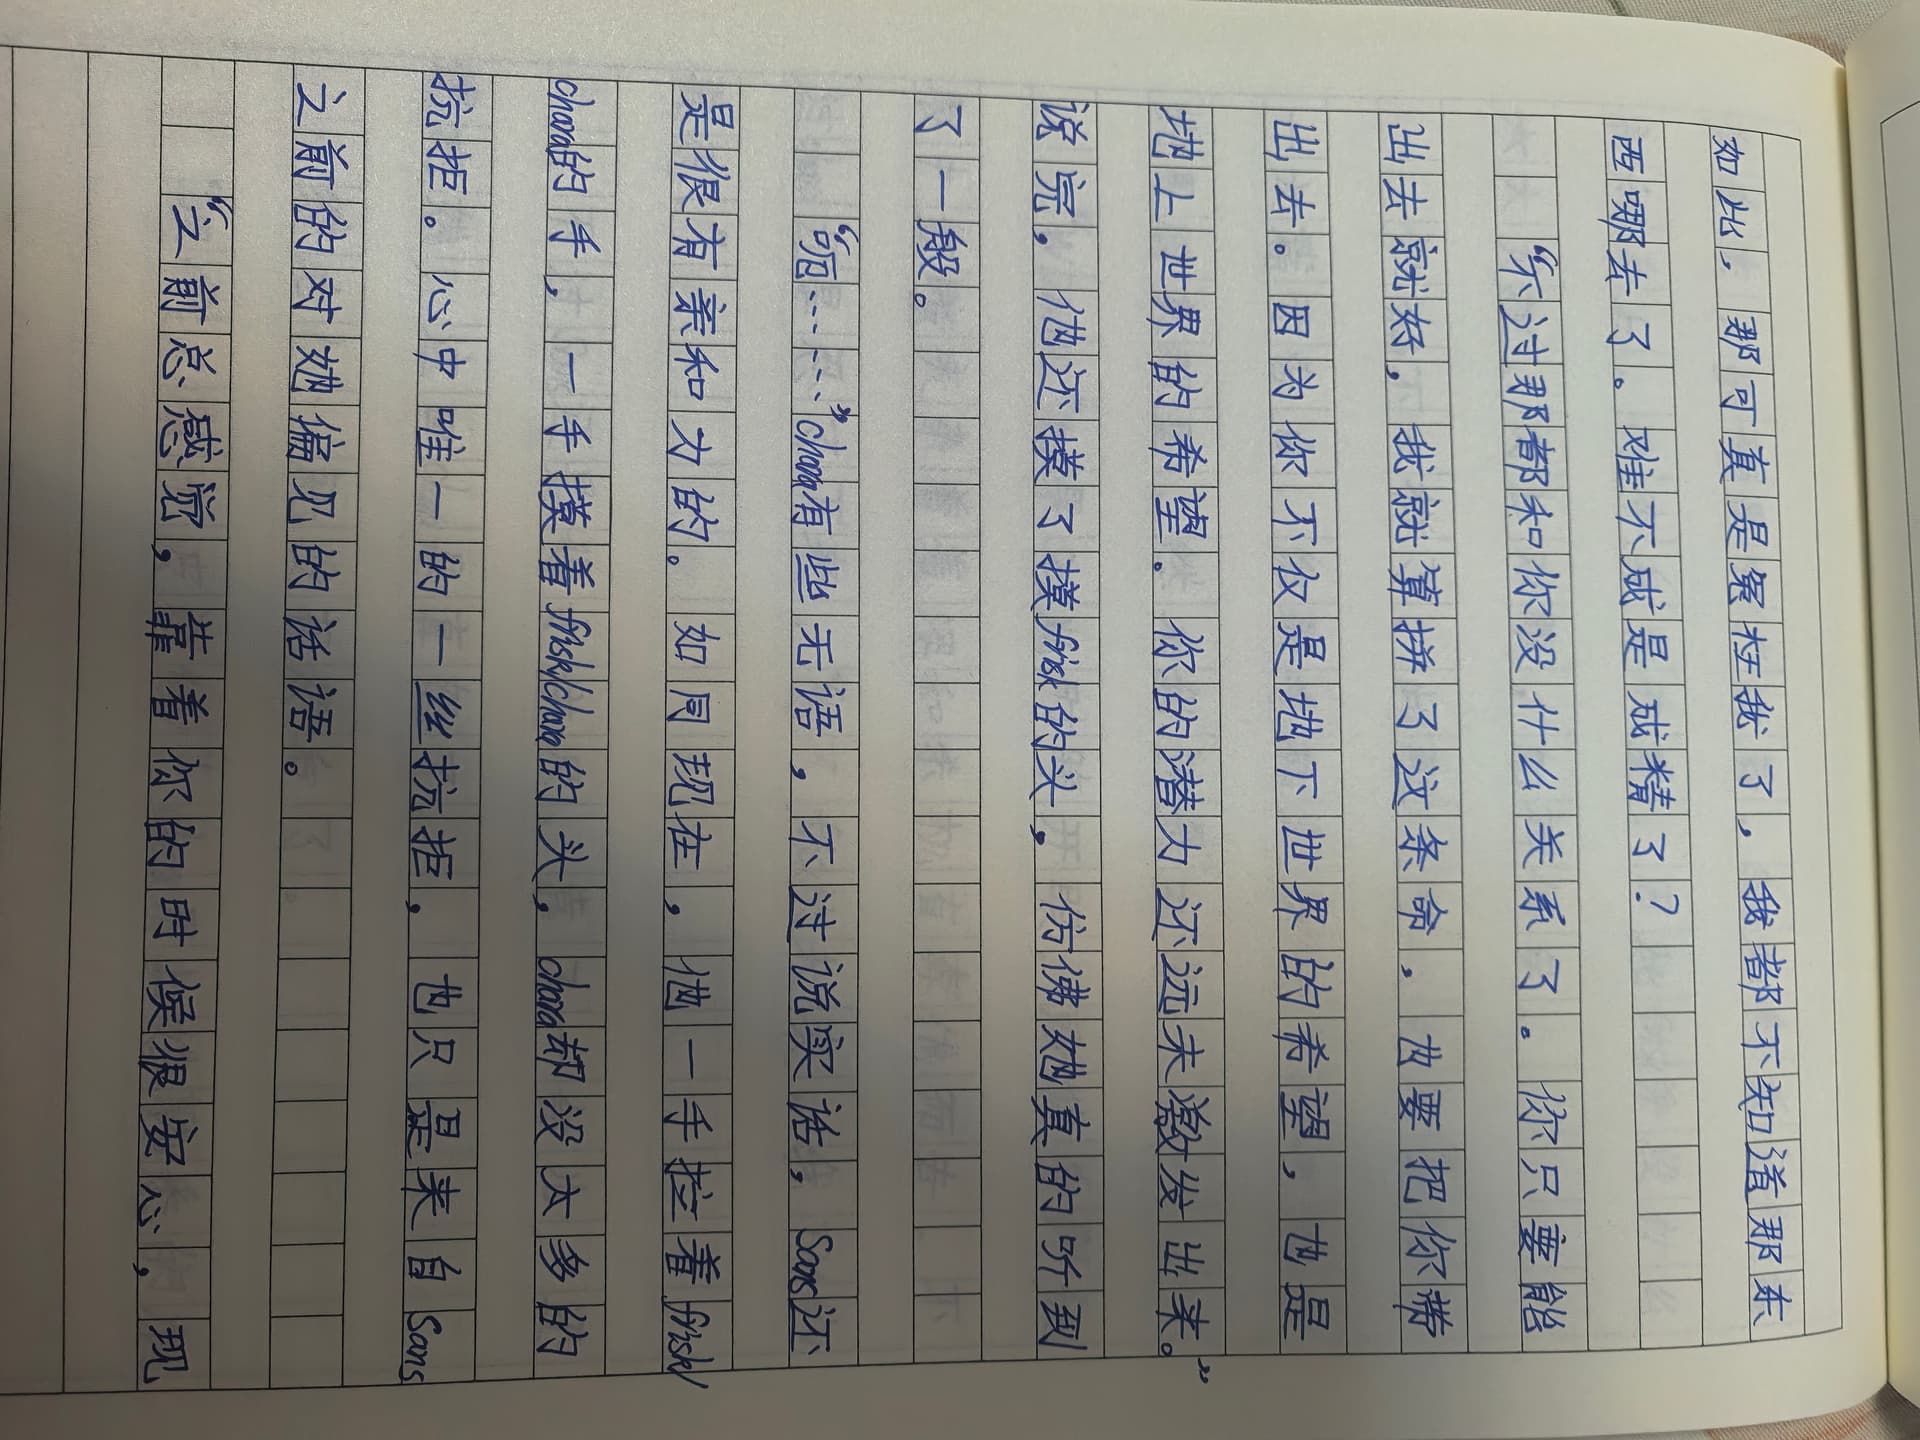 如此，那可真是累框我了，我都不知道那东
西哪去了。难不成是成精了？
“不过那都和你没什么关系了。你只要能
出去就好，我就算拼了这条命，也要把你带
出去。因为你不仅是地下世界的希望，也是
地上世界的希望。你的潜力还远未激发出来。”
说完，他还摸了摸frisk的头，仿佛她真的听到
了一般。
“呃……”chara有些无语，不过说实话，Sans还
是很有亲和力的。如同现在，他一手拉着frisk/
chara的手，一手摸着frisk/chara的头，chara却没太多的
抗拒。心中唯一的一丝抗拒，也只是来自Sans
之前的对她偏见的话语。
“之前总感觉，靠着你的时候很安心，现